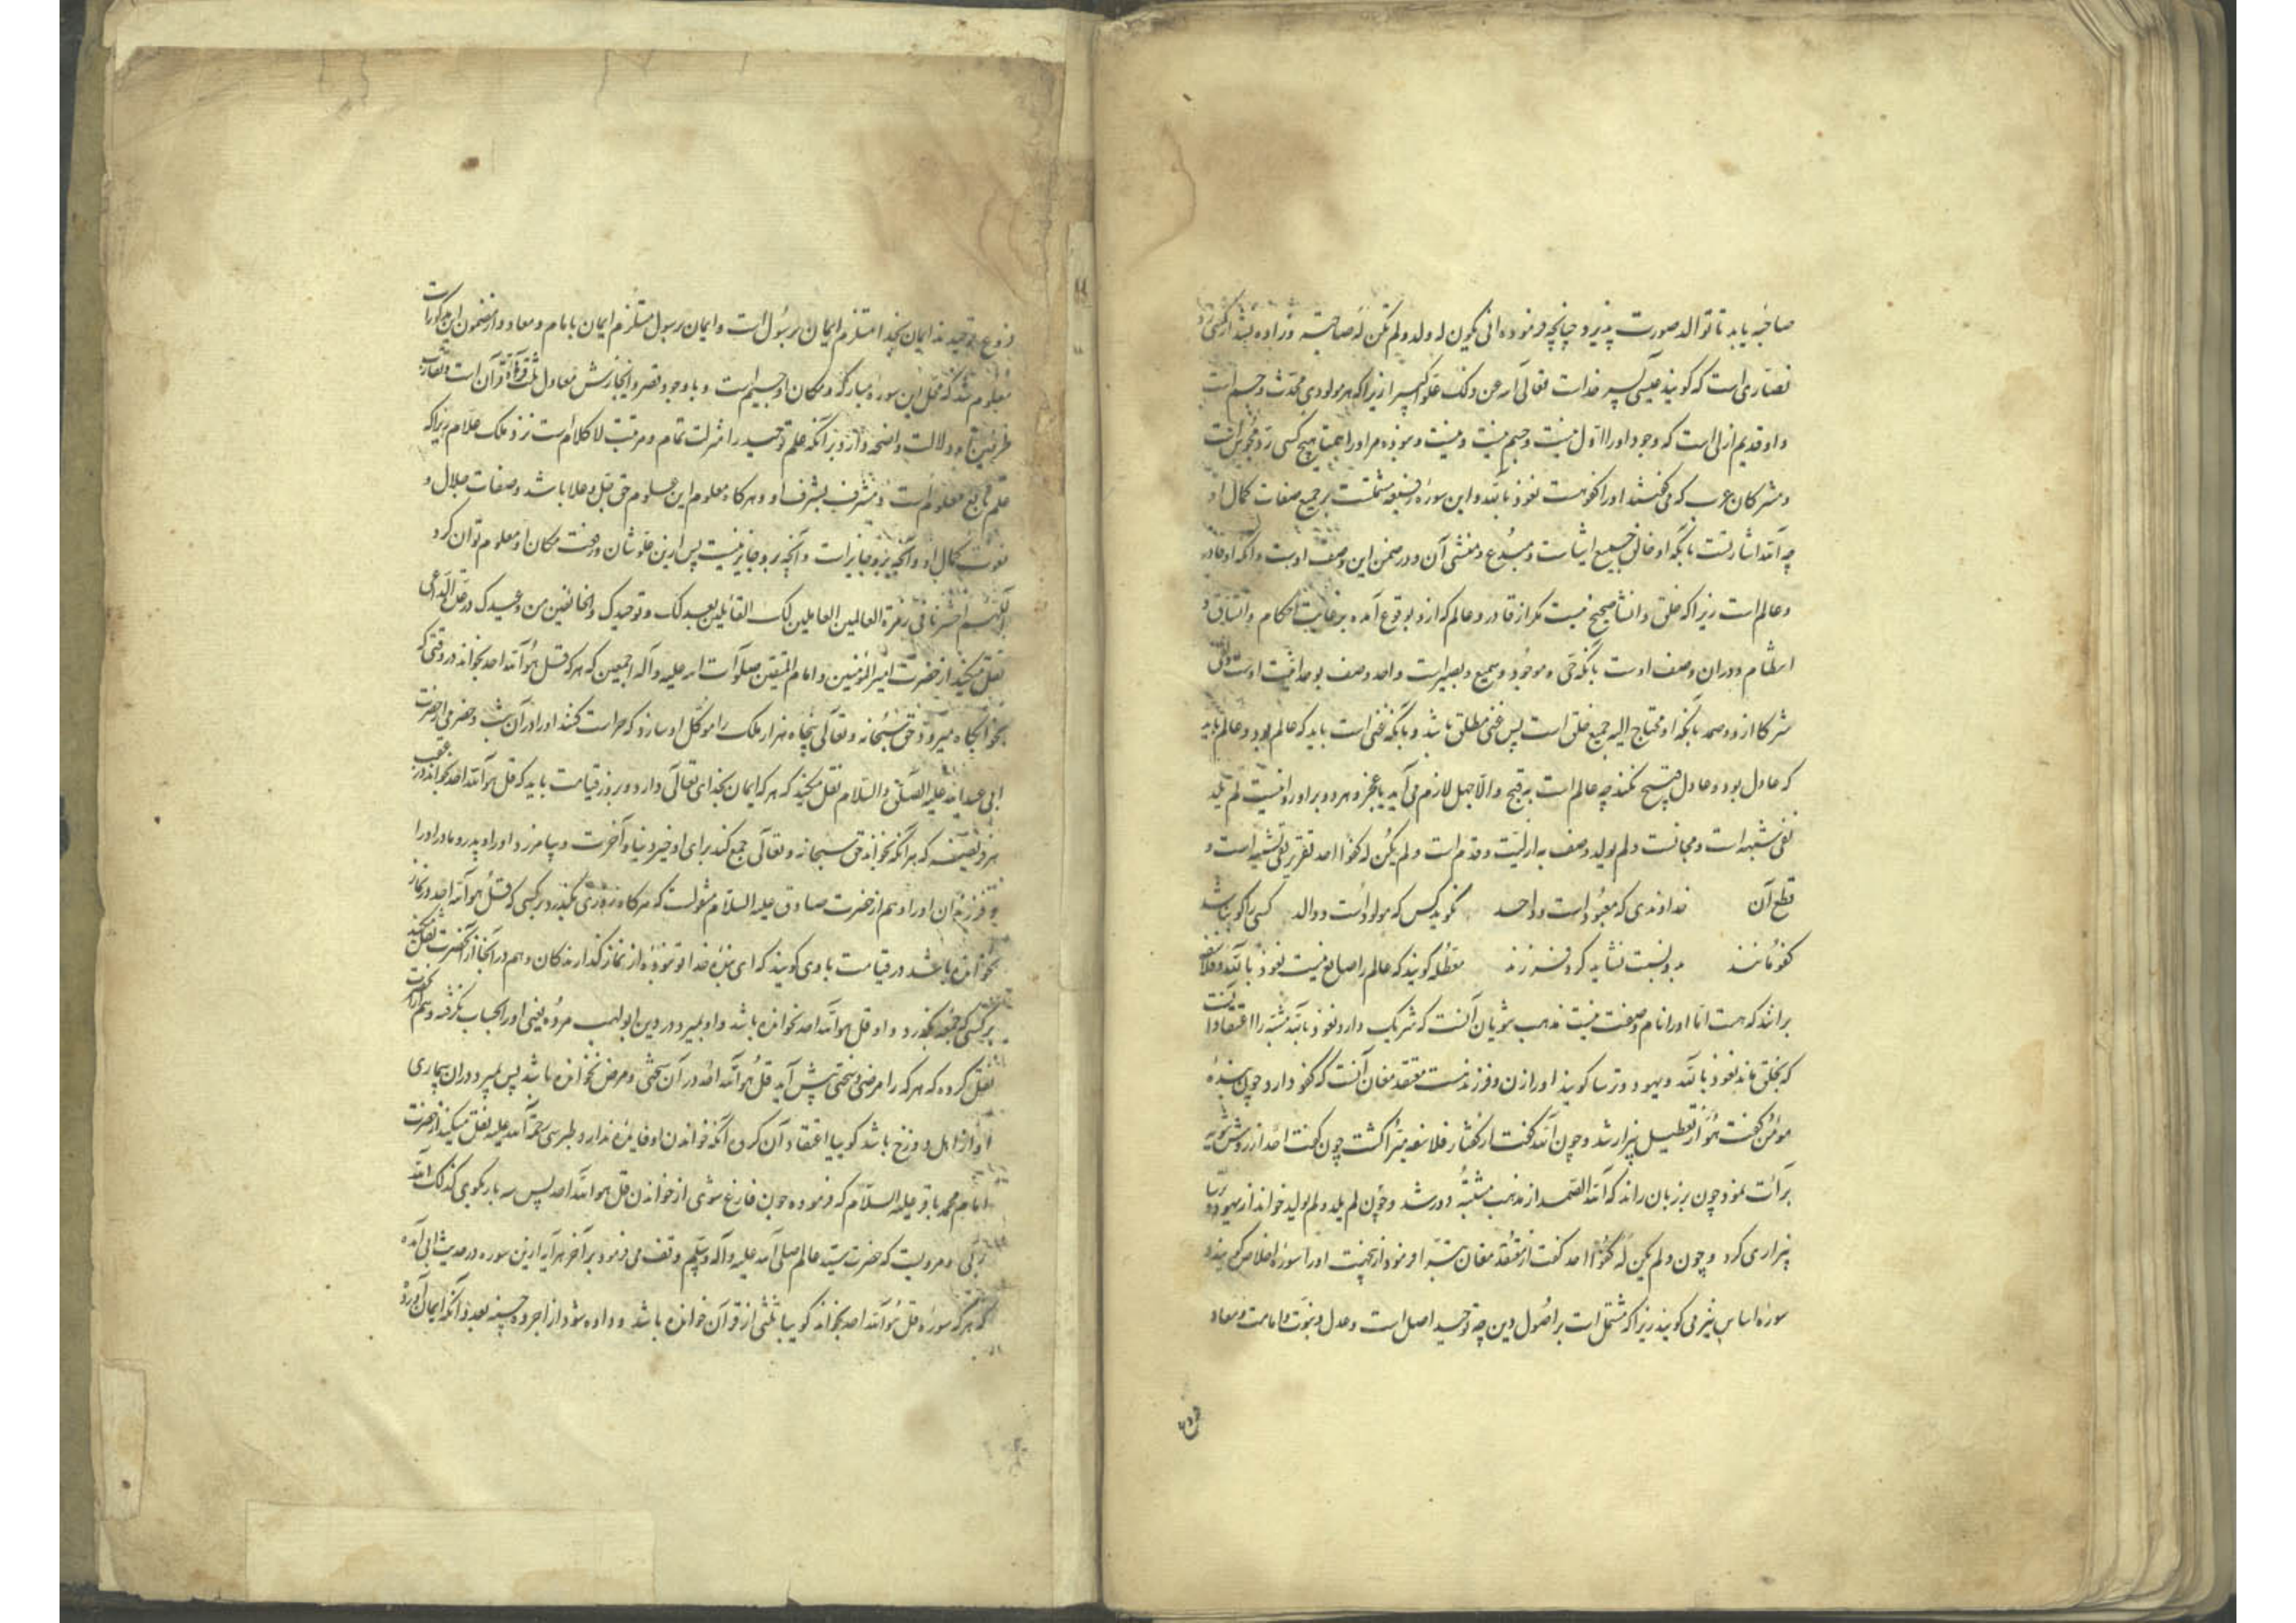 صاحبه یابد تا توالد صورت پذیرد چنانچه فرموده انی یکون له ولد ولم تکن له صاحبة
نصاری است که گویند عیسی پسر خداست تعالی الله عن ذلک علوا کبیرا زیرا که هر مولودی محدث و جسم است
و او قدیم ازلی است که وجود او را اول نیست و جسم نیست و نبوده مر او را همتا هیچ کسی رد مجوس است
و مشرکان عرب که می گفتند او را کفو هست نعوذ بالله و این سوره رفیعه مشتملست بر جمیع صفات کمال او
چه الله اشارتست بانکه او خالق جمیع اشیاست و مبدع و منشی آن و در ضمن این وصف اوست بانکه او قادر
و عالم است زیرا که خلق و انشا صحیح نیست مگر از قادر و عالم که ازو بوقوع آمده بر غایت احکام و اتساق و
انتظام و در آن وصف اوست بانکه حی و موجود و سمیع و بصیر است و احد وصف بوحدانیت اوست و نفی
شرکا ازو و صمد بانکه او محتاج الیه جمیع خلق است پس غنی مطلق باشد و بانکه غنی است باید که عالم بود و عالم باید
که عادل بود و عادل قبیح نکند چه عالم است به قبح والا جهل لازم می آید یا عجز و هر دو بر او روا نیست لم یلد
نفی شبه است و مجانست و لم یولد وصف به ازلیت و قدم است و لم یکن له کفوا احد تقریر نفی تشبیه است و
قطع آن خداوندی که معبود است و واحد نگوید کس که مولود است و والد کسی را کو نباشد
کفو مانند بدو نسبت نشاید کرد فرزند معطله گویند که عالم را صانع نیست نعوذ بالله و فلاسفه
برانند که هست اما او را نام و صفت نیست مذهب ثنویان آنست که شریک دارد نعوذ بالله مشبه را اعتقاد آنست
که بخلق ماند نعوذ بالله و یهود و ترسا گویند او را زن و فرزند هست معتقد مغان آنست که کفو دارد چون بنده
مؤمن گفت هو از تعطیل بیزار شد و چون الله گفت از گفتار فلاسفه مبرا گشت چون گفت احد از روش ثنویه
برآت نمود چون بر زبان راند که الله الصمد از مذهب مشبه دور شد و چون لم یلد ولم یولد خواند از یهود و ترسا
بیزاری کرد و چون ولم یکن له کفوا احد گفت از معتقد مغان تبرا و نمود ازینجهت او را سوره اخلاص گویند و
سوره اساس نیز می گویند زیرا که مشتمل است بر اصول دین چه توحید اصل است و عدل و نبوت و امامت و معاد
فروع
فروع توحیدند ایمان بخدا مستلزم ایمان برسول است و ایمان برسول مستلزم ایمان بامام و معاد و از مضمون این مذکورات
معلوم شد که محل این سوره مبارکه و مکان او جسیم است و با وجود قصر و ایجازش معادل ثلث قرآن است
دلالت واضحه دارد برآنکه علم توحید را منزلت تمام و مرتبت لا کلام است نزد ملک علام زیرا که
علم تابع معلوم است و مشرف بشرف او و هرگاه معلوم این علوم حق جل و علا باشد و صفات جلال و
نعوت کمال او و آنچه برو جایز است و آنچه برو جایز نیست پس ازین علو شان و رفعت مکان او معلوم توان کرد
اللهم احشرنا فی زمرة العالمین العاملین لک القائلین بعدلک و توحیدک و الخائفین من وعیدک
نقل میکنند از حضرت امیر المؤمنین و امام المتقین صلوات الله علیه و آله اجمعین که هر که قل هو الله احد بخواند در وقتی که
بخوابگاه میرود حق سبحانه و تعالی پنجاه هزار ملک را موکل او سازد که حراست کنند او را در آن شب
ابی عبدالله علیه الصلوة والسلام نقل میکنند که هر که ایمان بخدای تعالی دارد و بروز قیامت باید که قل هو الله احد بخواند در عقب
هر فریضه که هر آنکه بخواند حق سبحانه و تعالی جمع کند برای او خیر دنیا و آخرت و بیامرزد او را و پدر و مادر او را
و فرزندان او را و هم از حضرت صادق علیه السلام منقولست که هرگاه روزی بگذرد بر کسی که قل هو الله احد در نماز
نخوانده باشد در قیامت با وی گویند که ای بنده خدا تو نبوده از نماز گذارندگان و هم در آنجا از آنحضرت نقل میکنند
بر کسی که جمعه بگذرد و او قل هو الله احد نخوانده باشد و او بمیرد در دین ابو لهب مرده
نقل کرده که هر که را مرضی و سختی پیش آید قل هو الله احد در آن سختی و مرض نخوانده باشد پس بمیرد در آن بیماری
او از اهل دوزخ باشد گوییا اعتقاد آن کرده آنکه خواندن او فایده ندارد و طبرسی رحمة الله علیه نقل میکند از حضرت
امام محمد باقر علیه السلام که فرموده چون فارغ شوی از خواندن قل هو الله احد پس سه بار بگوی کذلک الله
ربی و مرویست که حضرت سید عالم صلی الله علیه و آله وسلم وقف می فرمود بر آخر هر آیه ازین سوره در حدیث ابی آمده
که هر که سوره قل هو الله احد بخواند گوییا ثلثی از قرآن خوانده باشد و داده شود از اجر ده حسنه بعدد آنکه ایمان آورد